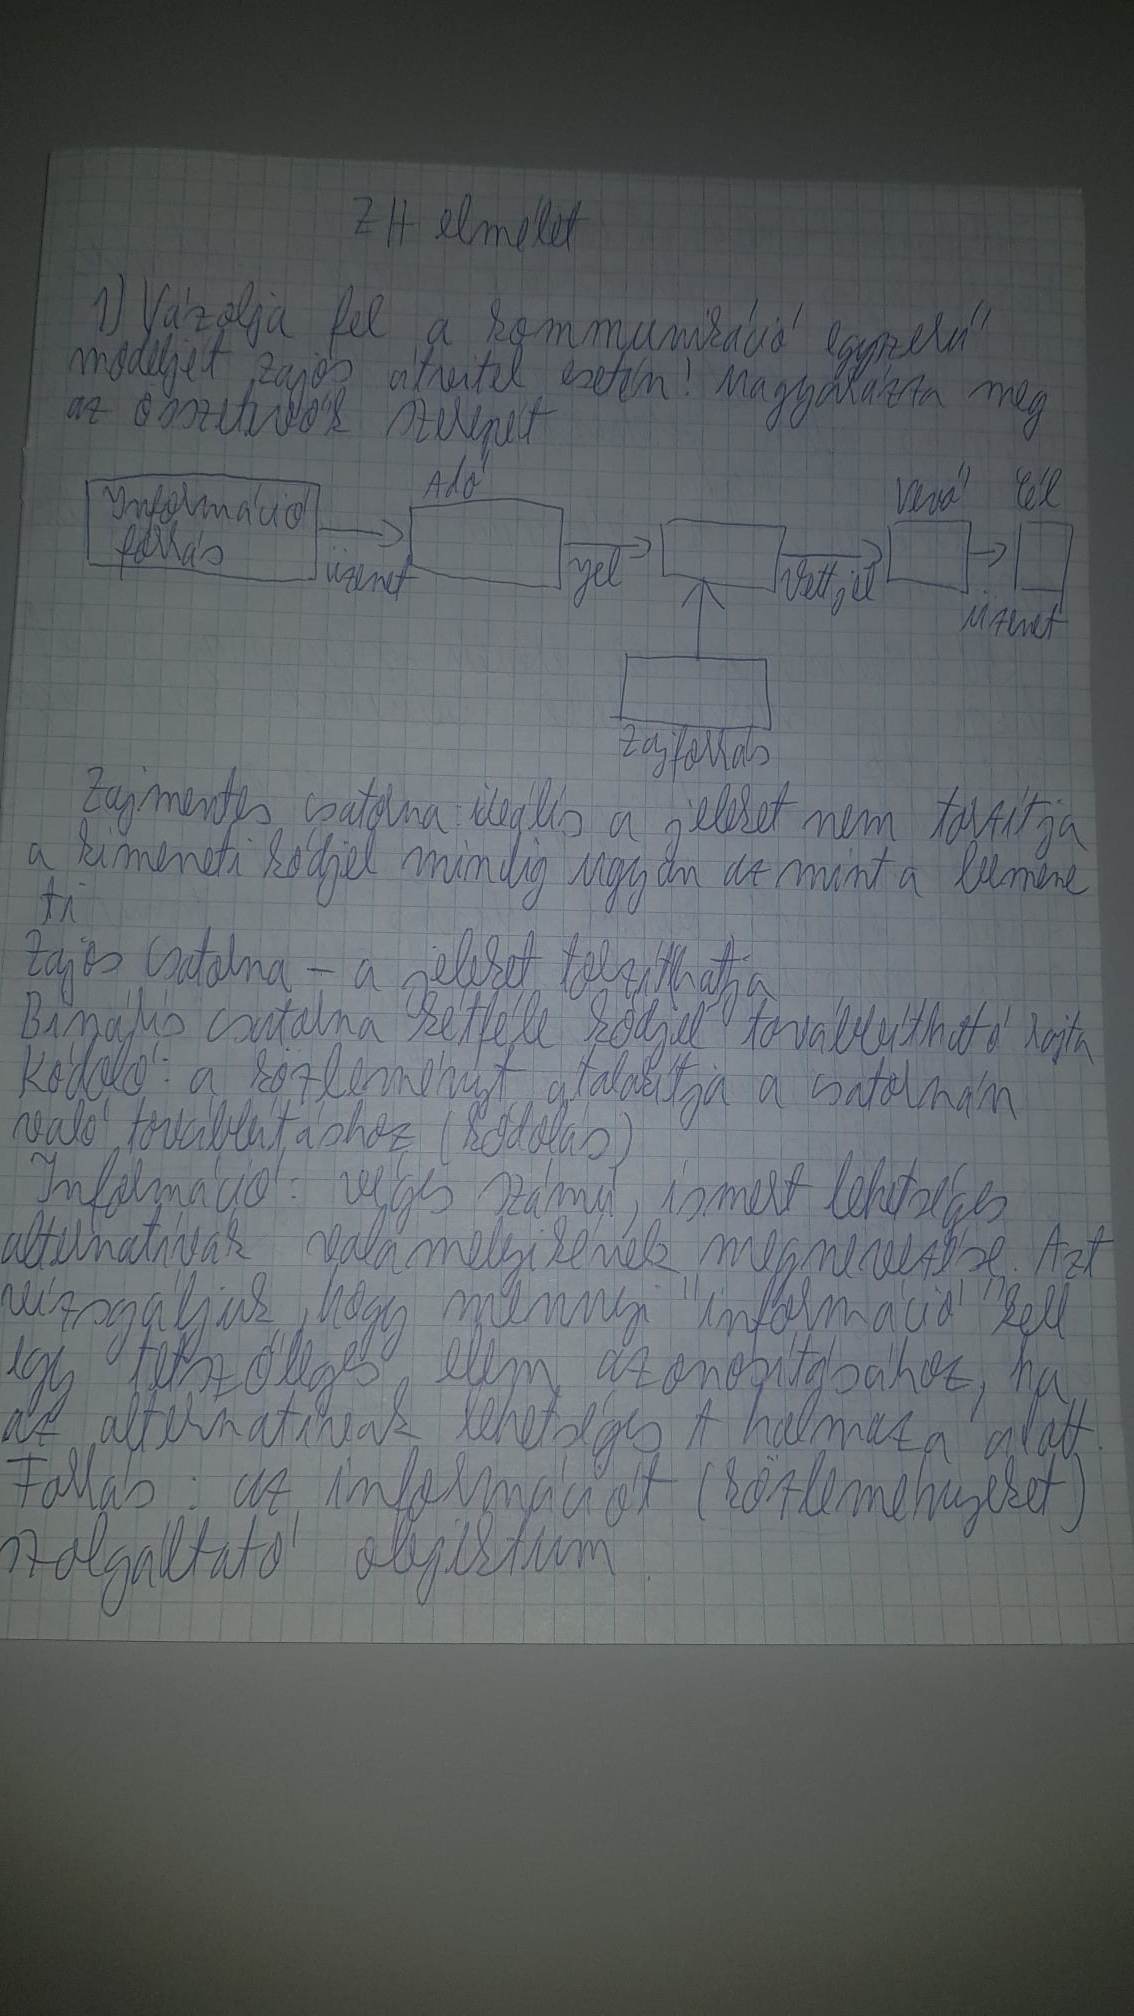 ZH elmélet
1) Vázolja fel a kommunikáció egyszerű
modeljét zajos átvitel esetén! Magyarázza meg
az összetevők szerepét
Információ
forrás
üzenet
Adó
jel
Vett jel
Vevő
üzenet
Cél
Zajforrás
Zajmentes csatorna: ideális a jeleket nem torzítja
a kimeneti kódjel mindig ugyan az mint a bemene
ti
Zajos csatorna – a jeleket torzíthatja
Bináris csatorna kétféle kódjel továbbítható rajta
Kódoló: a közleményt átalakítja a csatornán
való továbbításhoz (kódolás)
Információ: véges számú, ismert lehetséges
alternatívák valamelyikének megnevezése. Azt
vizsgáljuk, hogy mennyi "információ" kell
egy tetszőleges elem azonosításához, ha
az alternatívák lehetséges halmaza
Forrás: az információt (közleményeket)
szolgáltató objektum.